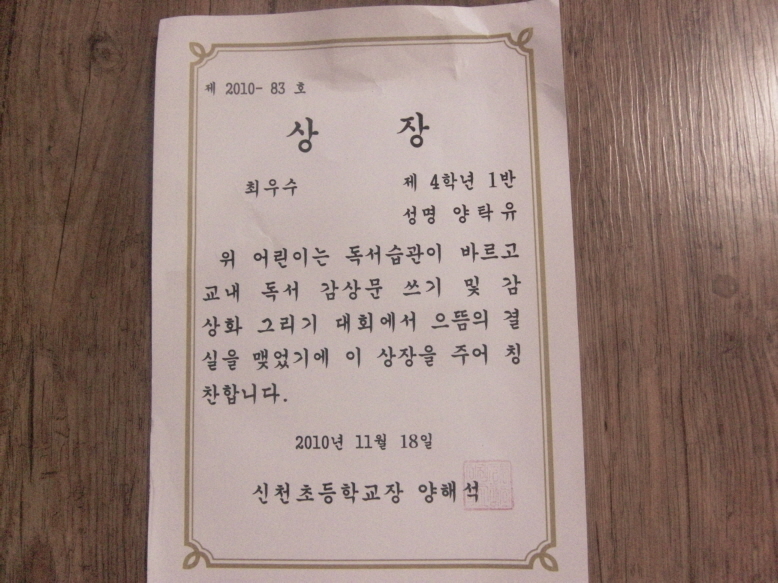 제 2010- 83 호
상 장
최우수 제 4학년 1반
성명 양탁유
위 어린이는 독서습관이 바르고
교내 독서 감상문 쓰기 및 감
상화 그리기 대회에서 으뜸의 결
실을 맺었기에 이 상장을 주어 칭
찬합니다.
2010년 11월 18일
신천초등학교장 양해석